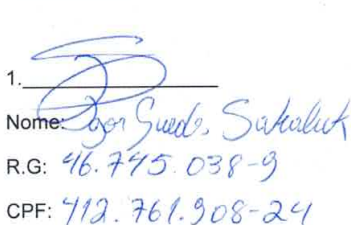 1.
Nome: Igor Guedes Sakaluk
R.G: 46.745.038-9
CPF: 412.761.908-24